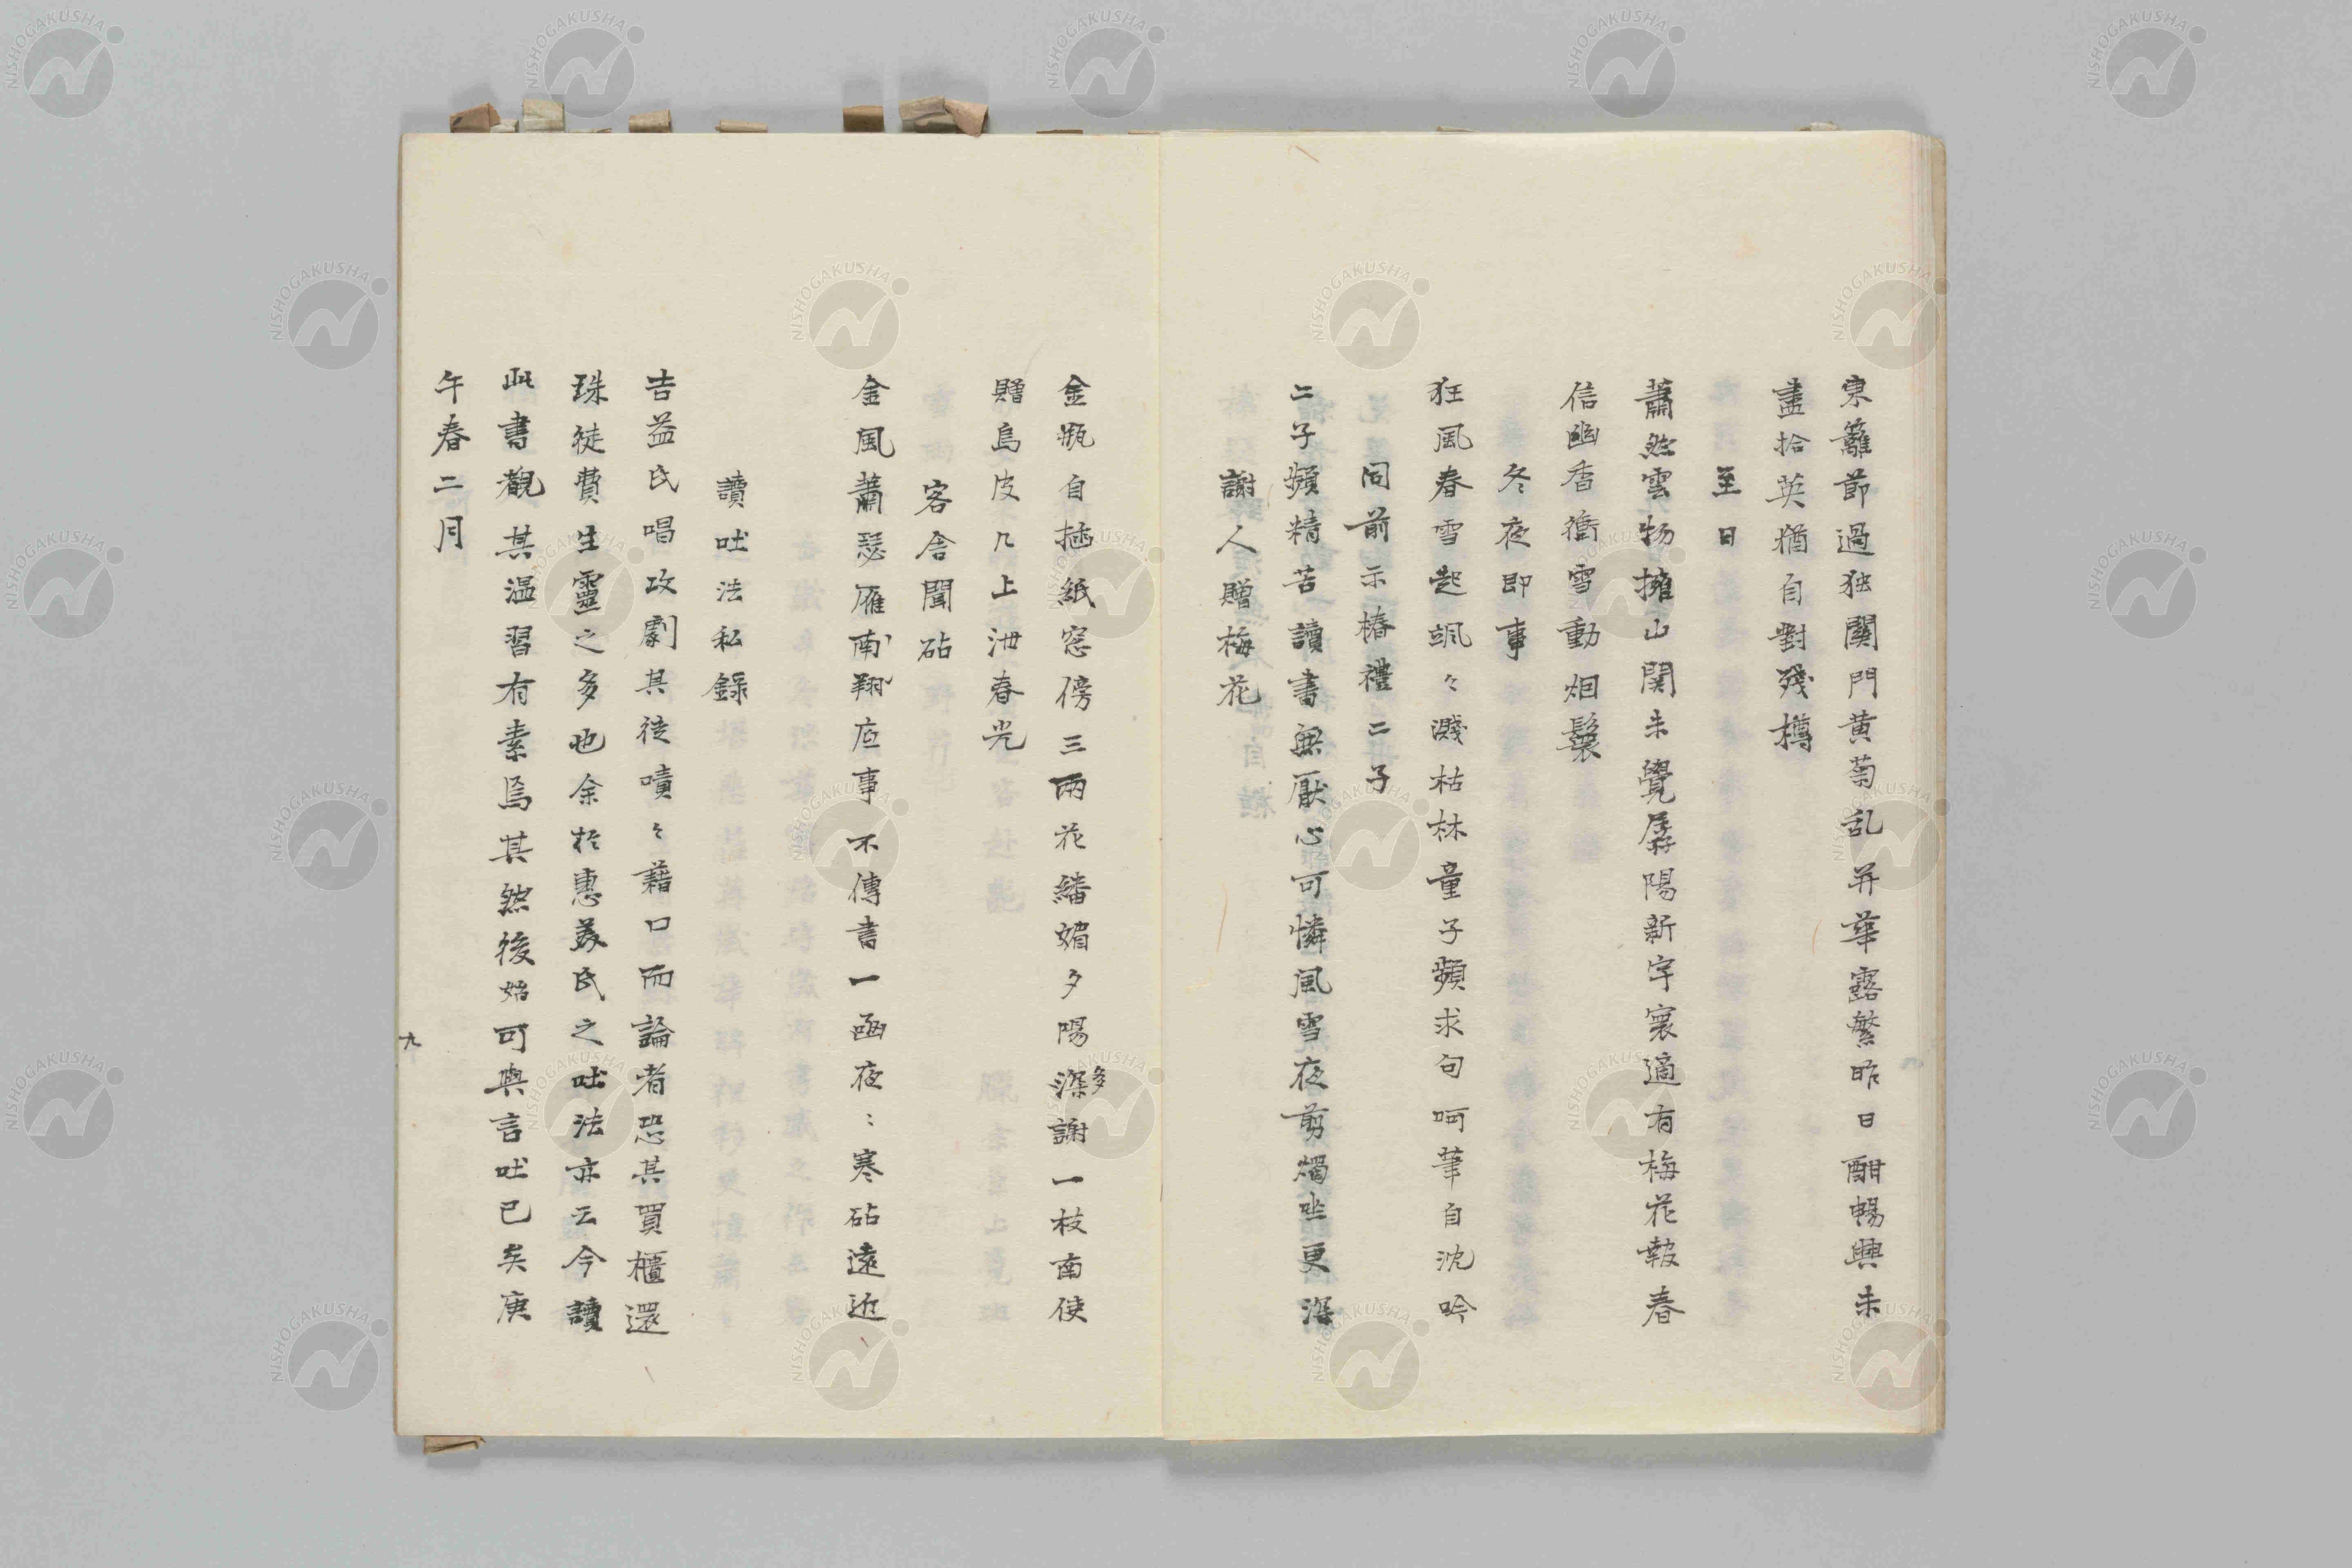 東籬節過独関門黄菊乱開華露繁昨日酣暢興未
盡拾英猶自對殘樽
至日
蕭然雲物擁山関未覺孱陽新宇寰適有梅花報春
信幽香衝雪動烟鬟
冬夜即事
狂風春雪起颯々濺枯林童子頻求句呵筆自沈吟
同前示椿禮二子
二子頻精苦讀書無厭心可憐風雪夜剪燭坐更深
謝人贈梅花
金瓶自挿紙窓傍三両花繙媚夕陽深謝一枝南使
多
贈烏皮几上泄春光
客舎聞砧
金風蕭瑟雁南翔底事不傳書一函夜〻寒砧遠近
讀吐法私録
吉益氏唱攻劇其徒嘖々藉口而論者恐其買櫃還
珠徒費生靈之多也余於惠美氏之吐法亦云今讀
此書觀其温習有素焉其然後始可與言吐已矣庚
午春二月
九
NISHOGAKUSHA